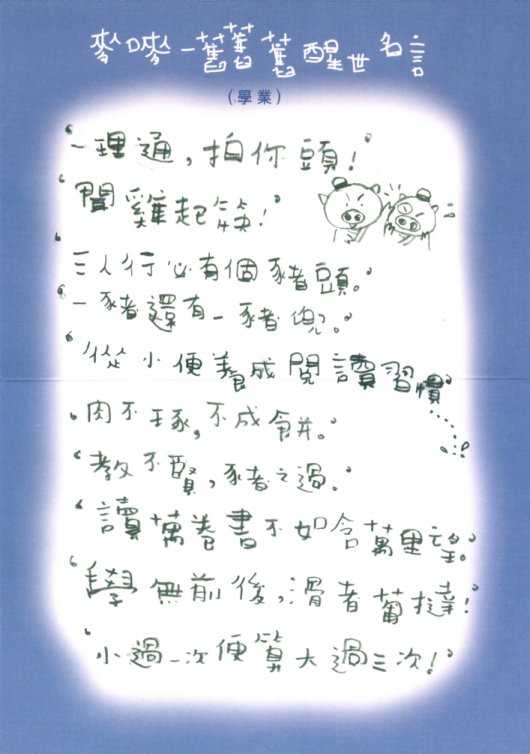 麥兜一舊舊舊醒世名言
（學業）
“一理通，拍你頭！”
“聞雞起筷！”
“三人行必有個豬頭。”
“一豬還有一豬兜。”
“從小便養成閱讀習慣”……
“肉不琢，不成餅。”
“教不賢，豬之過。”
“讀萬卷書不如含萬里望。”
“學無前後，滑者葡撻！”
“小過一次便算大過三次！”